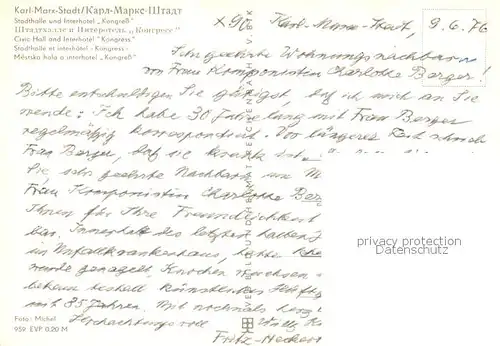 Karl-Marx-Stadt/Карл-Маркс-Штадт
Stadthalle und Interhotel „Kongreß“
Штадтхалле и Интеротель „Конгресс“
Civic Hall and Interhotel "Kongress"
Stadthalle et interhotel - Kongress -
Městska hala a interhotel „Kongreß“
x 90
Karl-Marx-Stadt, 9.6.76
Sehr geehrte Wohnungsnachbarin
von Frau Komponistin Charlotte Berger!
Bitte entschuldigen Sie gütigst, daß ich mich an Sie
wende: Ich habe 30 Jahre lang mit Frau Berger
regelmäßig korrespondiert. Vor längerer Zeit schrieb
Frau Berger, daß sie krank ist.
Sie, sehr geehrte Nachbarin um
Frau Komponistin Charlotte Ber
Ihnen für Ihre Freundlichkeit
bar. Innerhalb des letzten halben J
im Unfallkrankenhaus, hatte
wurde genagelt. Knochen wuchsen
mit 85 Jahren. Mit nochmals herzl
Hochachtungsvoll Willy K
Fritz-Heckert
Foto: Michel
959 EVP 0,20 M
VEB BILD UND HEIMAT REICHENBACH (VOGTL)
privacy protection
oldthing.de